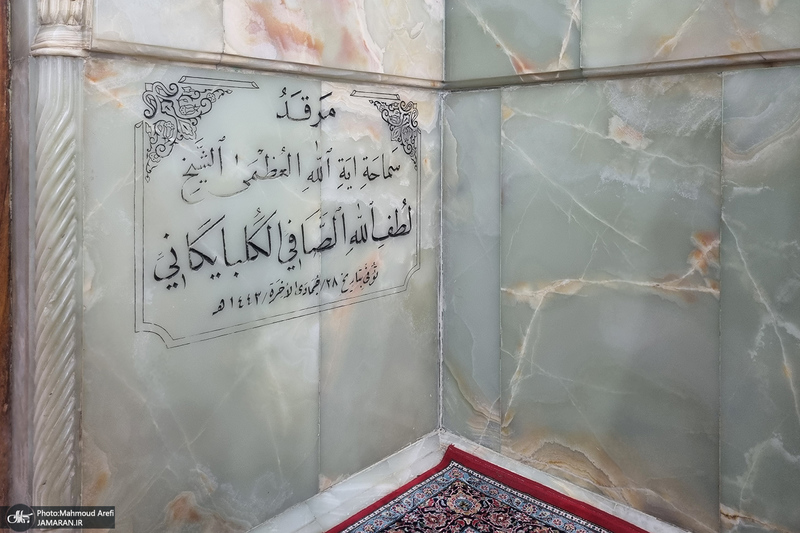 مَرقَدُ
سَماحَةِ ايَةِ ٱللهِ العُظمىٰ ٱلشَّيخ
لُطفِ ٱللهِ ٱلصَّافي الگُلبايگاني
تُوُفّي بتاريخ ٢٨/جُمادَى الآخرة/١٤٤٣هـ
Photo:Mahmoud Arefi
JAMARAN.IR